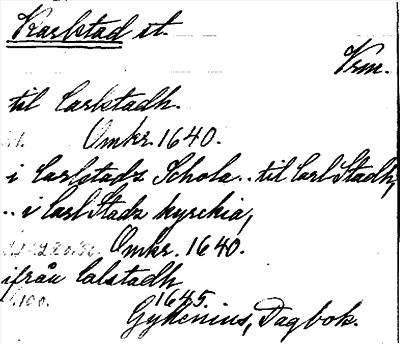 Karlstad st.
Vrm.
til Carlstadh.
Omkr. 1640.
i Carlstadz Schola .. til Carl Stadh,
.. i Carl Stadz kyrckia,
Omkr. 1640.
ifrån Calstadh
1645.
Gyllenius, Dagbok.